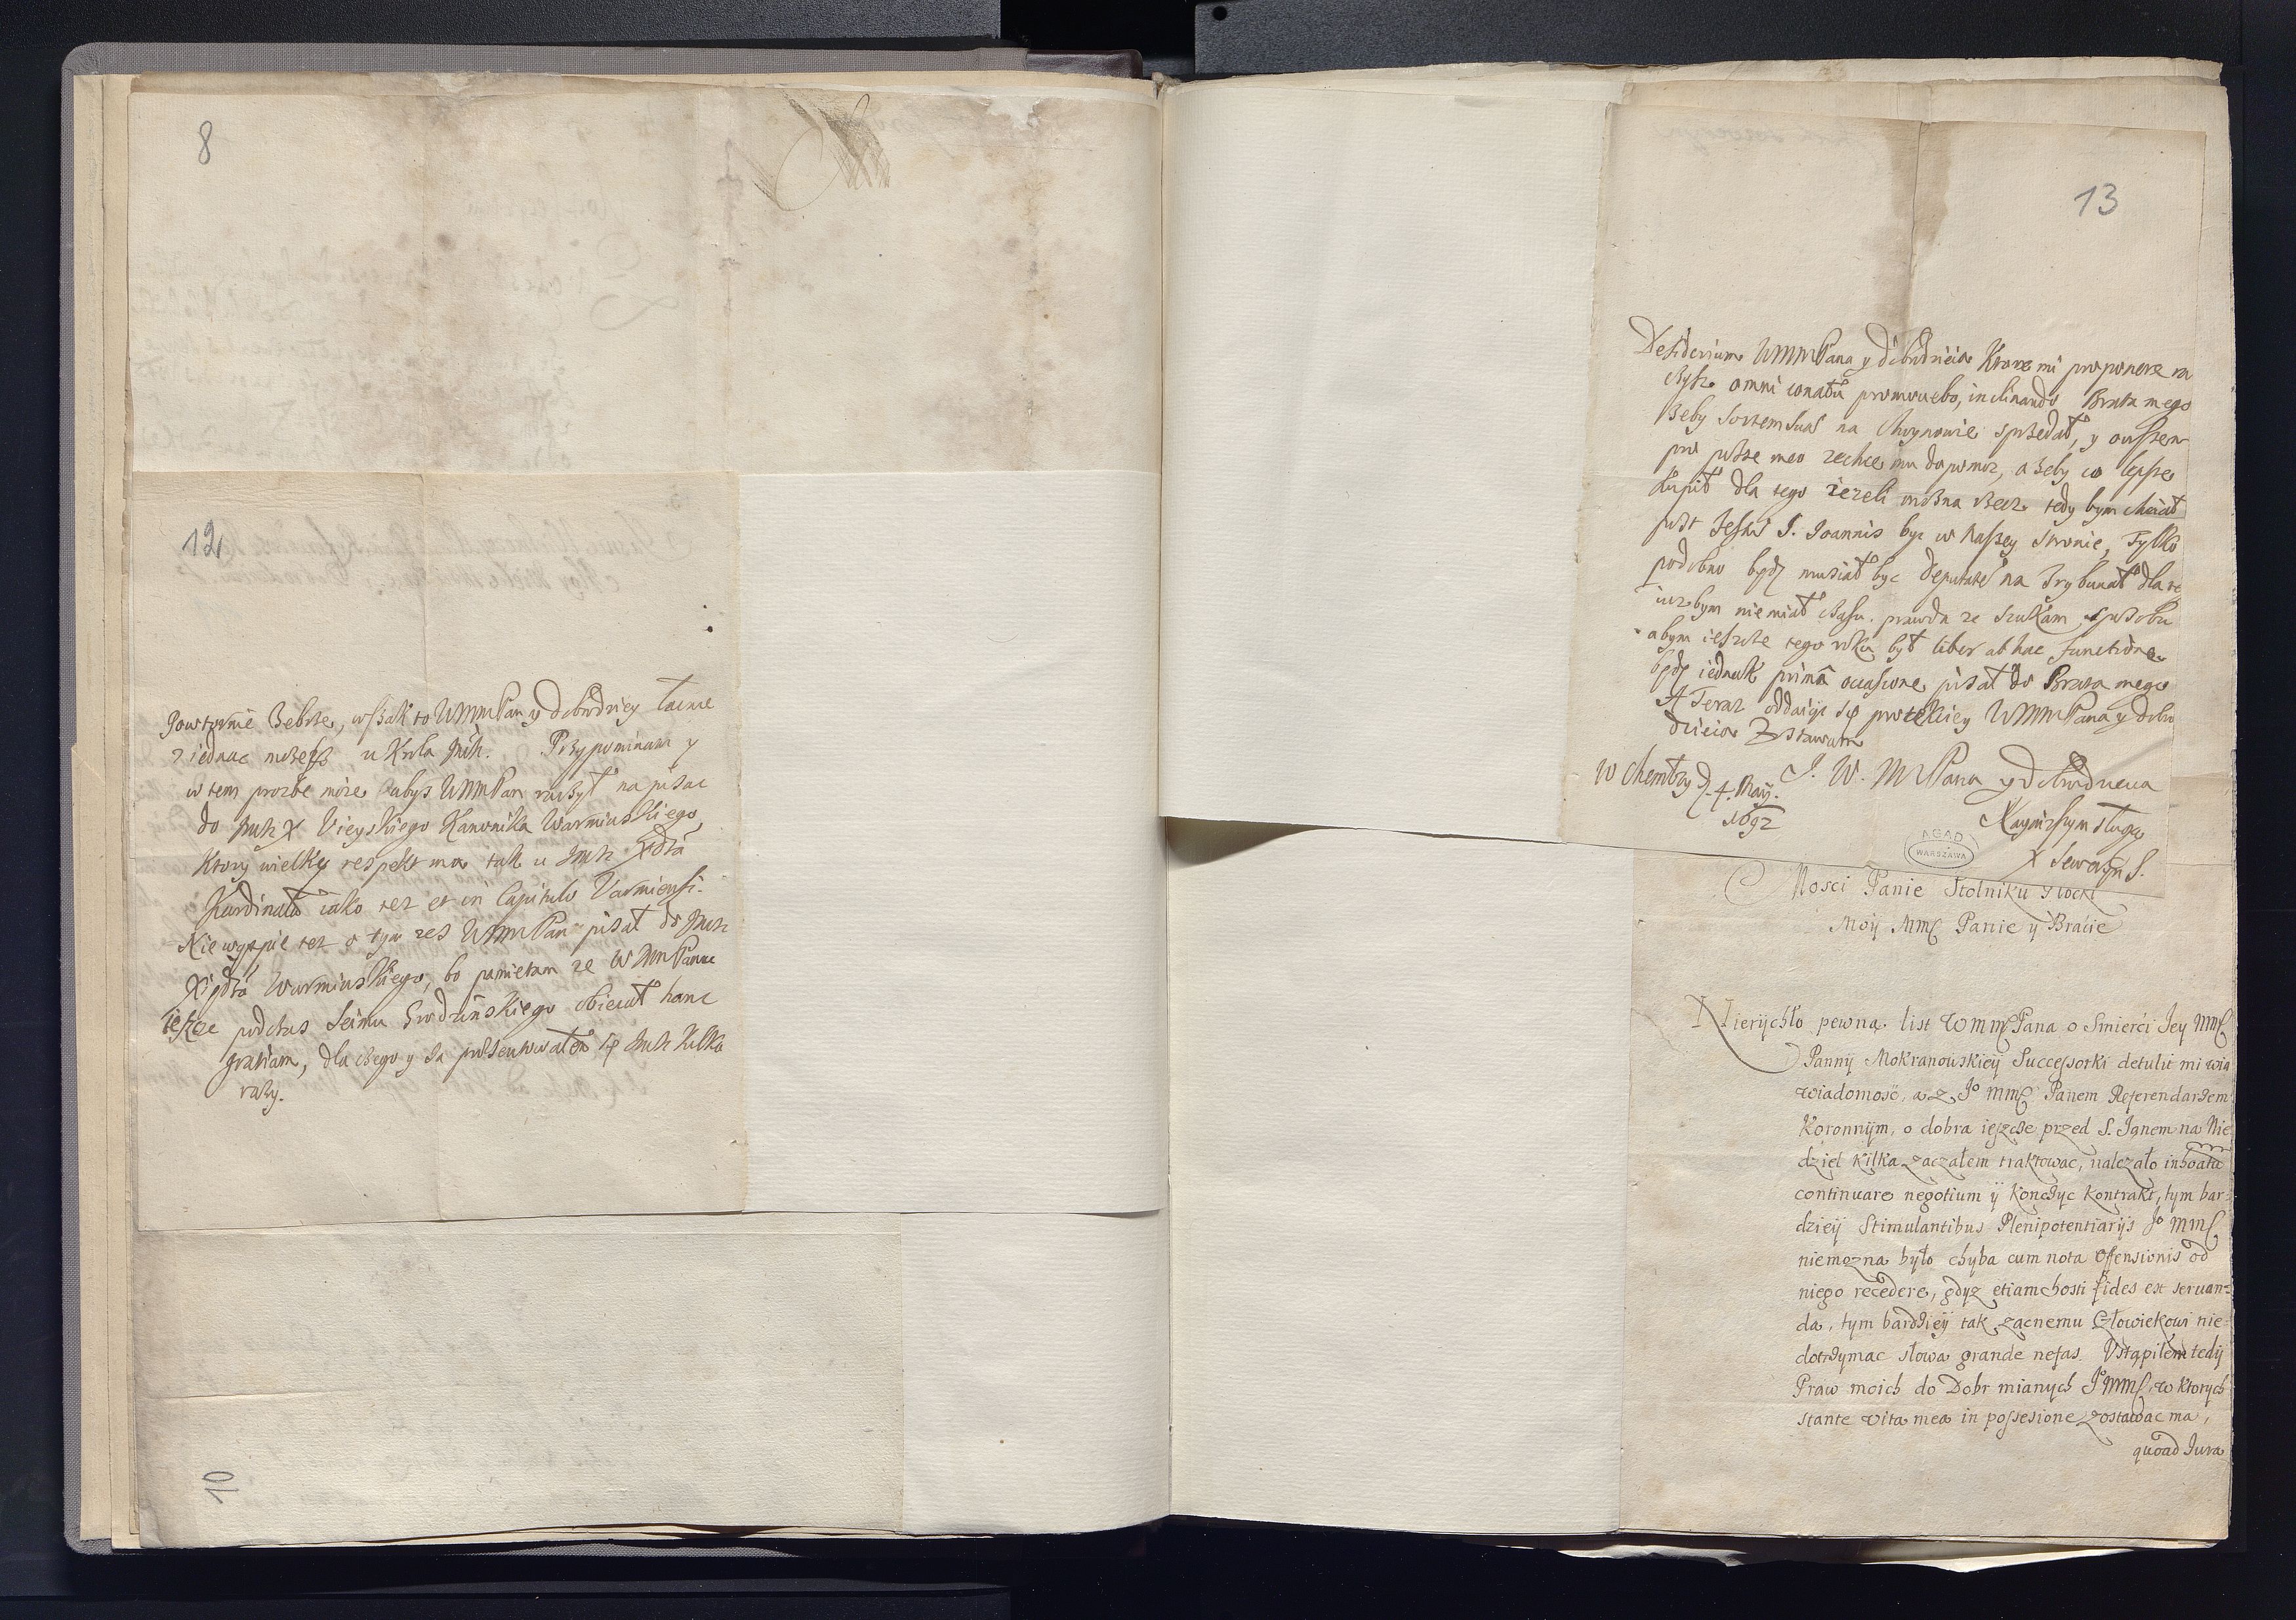 8
12
powtornie Zebrze, wszak to WMMPan y dobrodziey łacno
ziednac mozesz u Krola Jmści. Przypominam y
w tem prozbe moie abys WMMPan raczył napisac
do Jmści X Vieyskiego Kanonika Warminskiego,
Ktory wielky respekt ma tak u Jmści Xdza
Kardinała iako tez et in Capitulo Varmiensi.
Nie wątpie tez o tym zes WMMPan pisał do Jmści
Xiędza Warminskiego, bo pamietam ze WMMPanu
ieszcze podczas Seimu Grodzinskiego obiecał hanc
gratiam, dla czego y Ja prezentowałem się Jmści kilka
razy.
10
13
Desiderium WMMPana y dobrodzieia Ktore mi proponere ra
czysz omni conatu promovebo, inclinando Brata mego
Zeby sortem suam na sprzedał, y owszem
pro posse meo zechce mu dopomoz, aZeby co lepsze
kupił dla tego iezeli mozna rzecz tedy bym chciał
post festum S. Joannis byc w naszey stronie, Tylko
podobno będę musiał byc deputatem na Trybunał dla te
iuz bym nie miał czasu. prawda ze szukam sposobu
abym ieszcze tego roku był liber ab hac functione
będę iednak prima occasione pisał do Brata mego
A Teraz oddaiąc się protekciey WMMPana y dobro
dzieia Zostawam
J. W. MMPana y dobrodzieia
w Chemłzy d. 4. Maij.
1692
Nayniższym sługą
X Seweryn S.
AGAD
WARSZAWA
Mosci Panie Stolniku Płocki
Moij MMś Panie ij Bracie
Nierijchło pewną list WMMśPana o Smierći Jey MMś
Pannij Mokranouskieij Successorki detulit mi wia
wiadomosć, a z Jo MMś Panem Referendarzem
Koronnijm, o dobra ieszcze przed S. Ignem na Nie
dziel kilka zaczałem traktowac, nalezało inhoatū
continuare negotium ij konczyc kontrakt, tym bar-
dzieij Stimulantibus Plenipotentiarijs Jo MMś
niemozna było chyba cum nota offensionis od
niego recedere, gdyz etiam hosti fides est seruan=
da, tym bardzieij tak zacnemu Człowiekowi nie=
dotrzymac słowa grande nefas. Vstąpiłem tedij
Praw moich do Dobr mianych Jo MMś, w ktorych
stante vita mea in possesione zostawac ma,
quoad Jura